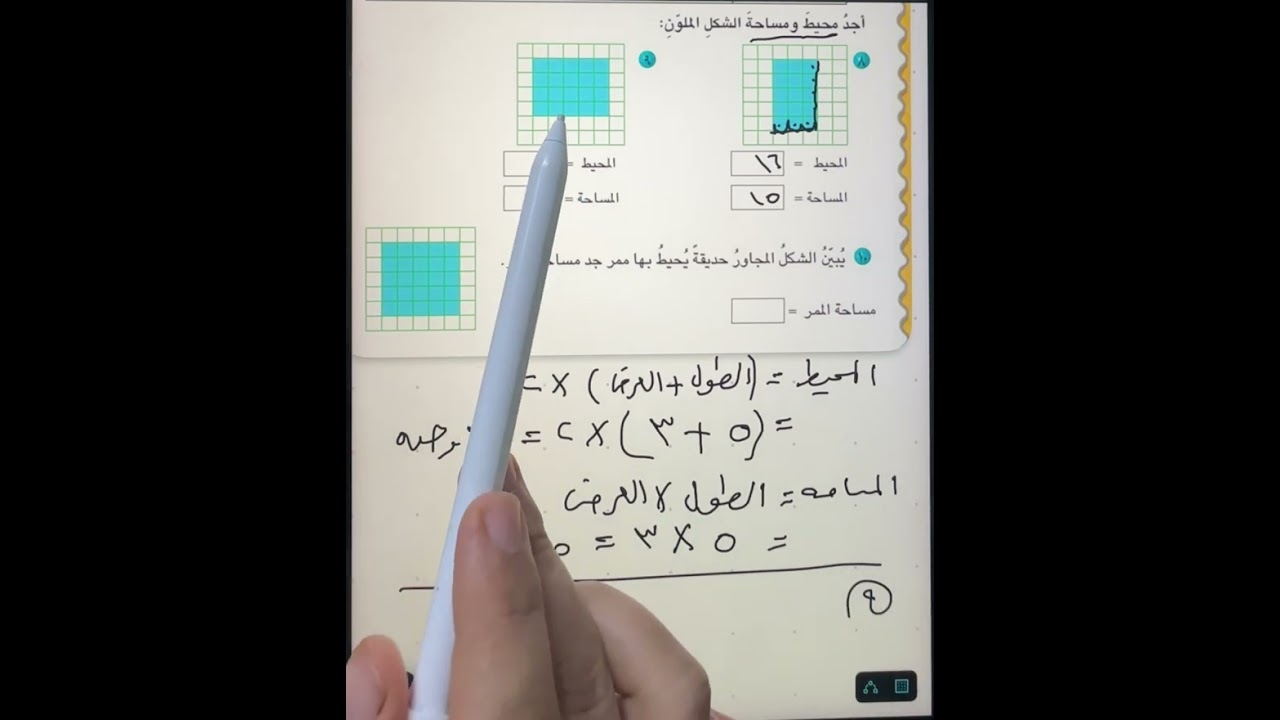 أجدُ محيطَ ومساحةَ الشكلِ الملوّنِ:
٨
المحيط = ١٦
المساحة = ١٥
٩
المحيط =
المساحة =
١٠ يُبيّنُ الشكلُ المجاورُ حديقةً يُحيطُ بها ممر جد
مساحة الممر =
المحيط = (الطول + العرض) × ٢
= (٥ + ٣) × ٢ =
المساحة = الطول × العرض
= ٥ × ٣ =
٩